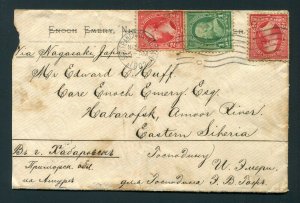 Enoch Emery, Ni
Via Nagasaki Japan
Mr Edward E. Huff
Care Enoch Emery. Esq
Habarofsk, Amoor River.
Eastern Siberia
Въ г. Хабаровскъ
Приморск. обл.
на Амуръ
Господину
И. Эмери,
для Господина Э. В. Гофъ